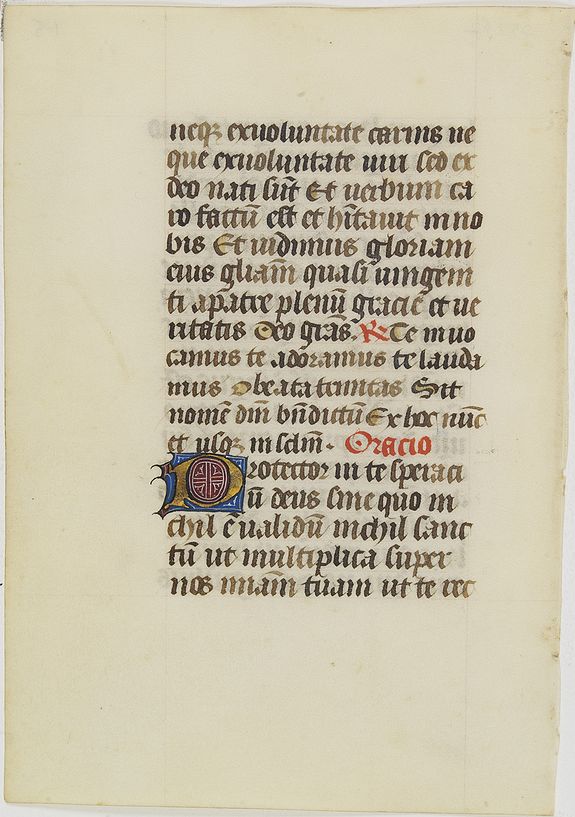 neqȝ exuoluntate carnis ne
que exuoluntate uiri sed ex
deo nati sūt Et uerbum ca
ro factū est et hītauit inno
bis Et uidimus gloriam
eius gliam̄ quasi unigeni
ti apatre plenū gracie et ue
ritatis Deo grās. R Te inuo
camus te adoramus te lauda
mus O beata trinitas Sit
nomē dn̄i bn̄dictū Ex hoc nūc
et usqȝ in sclm̄. Oracio
Protector in te speraci
ū deus sine quo ni
chil ē ualidū nichil sanc
tū ut multiplica super
nos miam̄ tuam ut te rec